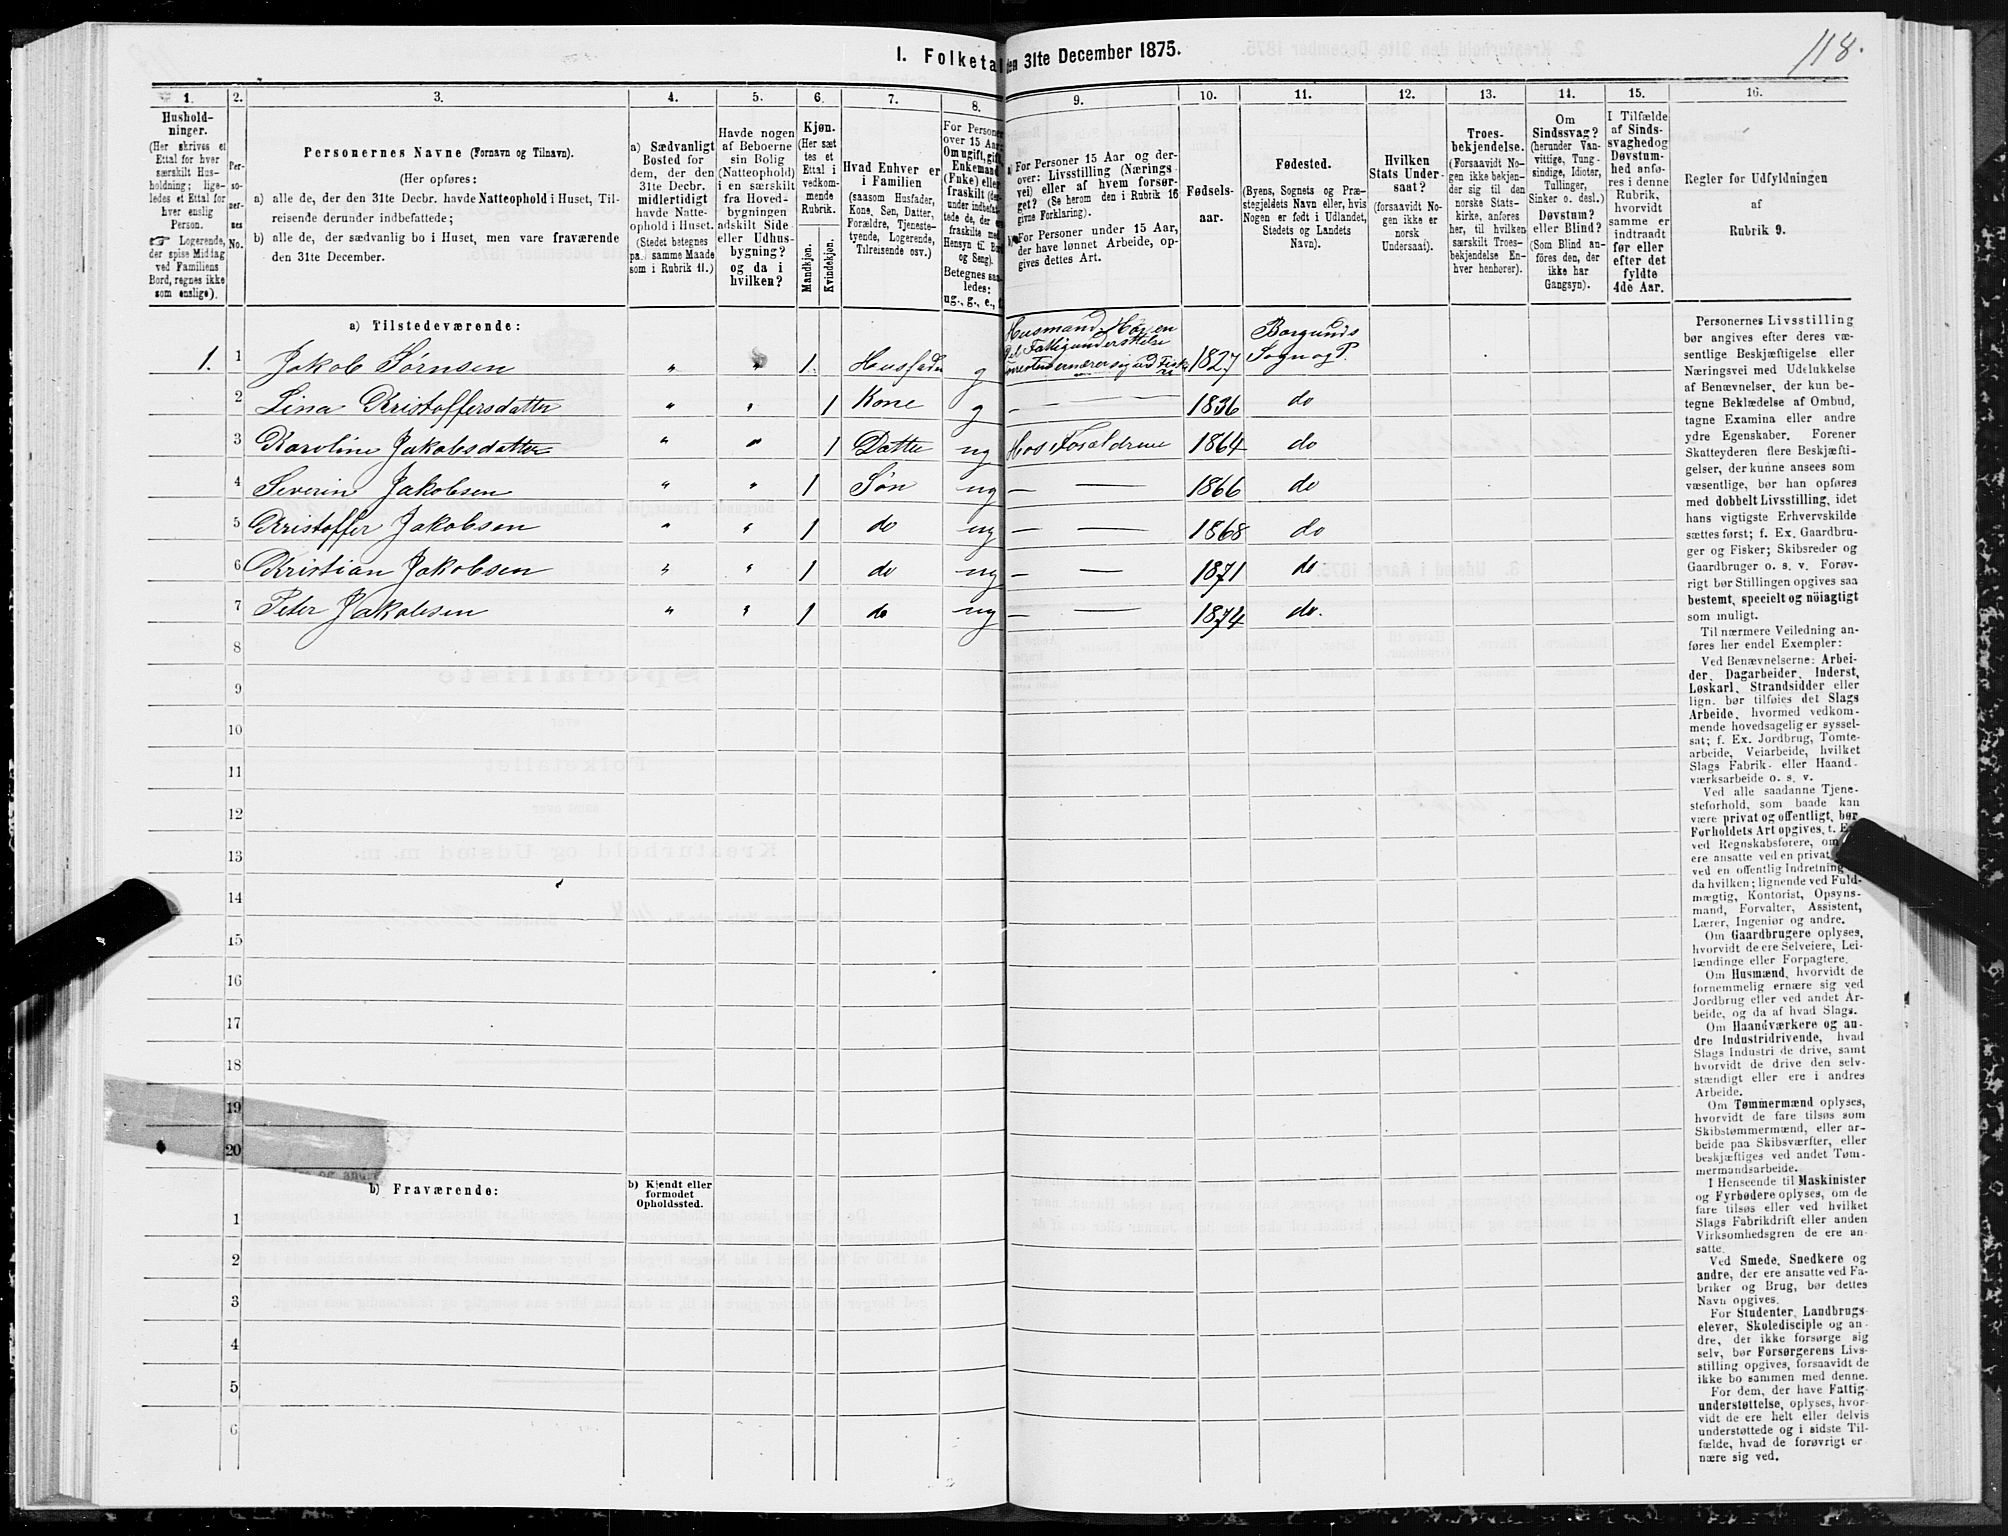 118.
I. Folketal den 31te December 1875.
1. 2. 3. 4. 5. 6. 7. 8. 9. 10. 11. 12. 13. 14. 15. 16.
Husholdninger. (Her skrives et Ettal for hver særskilt Husholdning; ligeledes et Ettal for hver enslig Person. ☞ Logerende, der spise Middag ved Familiens Bord, regnes ikke som enslige).
Personernes No.
Personernes Navne (Fornavn og Tilnavn).
(Her opføres:
a) alle de, der den 31te Decbr. havde Natteophold i Huset, Tilreisende derunder indbefattede;
b) alle de, der sædvanlig bo i Huset, men vare fraværende den 31te December.
a) Sædvanligt Bosted for dem, der den 31te Decbr. midlertidigt havde Natteophold i Huset. (Stedet betegnes paa samme Maade som i Rubrik 11.)
Havde nogen af Beboerne sin Bolig (Natteophold) i en særskilt fra Hovedbygningen adskilt Side- eller Udhusbygning? og da i hvilken?
Kjøn. (Her sættes et Ettal i vedkommende Rubrik.
Mandkjøn. Kvindekjøn.
Hvad Enhver er i Familien (saasom Husfader, Kone, Søn, Datter, Forældre, Tjenestetyende, Logerende, Tilreisende osv.)
For Personer over 15 Aar: Om ugift, gift, Enkemand (Enke) eller fraskilt
Betegnes saaledes: ug., g., e., f.
a) For Personer 15 Aar og derover: Livsstilling (Næringsvei) eller af hvem forsørget? (Se herom den i Rubrik 16 givne Forklaring).
b) For Personer under 15 Aar, der have lønnet Arbeide, opgives dettes Art.
Fødselsaar.
Fødested. (Byens, Sognets og Præstegjeldets Navn eller, hvis Nogen er født i Udlandet, Stedets og Landets Navn).
Hvilken Stats Undersaat? (forsaavidt Nogen ikke er norsk Undersaat).
Troesbekjendelse. (Forsaavidt Nogen ikke bekjender sig til den norske Statskirke, anføres her, til hvilken særskilt Troesbekjendelse Enhver henhører).
Om Sindssvag? (herunder Vanvittige, Tungsindige, Idioter, Tullinger, Sinker o. desl.) Døvstum? eller Blind? (Som Blind anføres den, der ikke har Gangsyn).
I Tilfælde af Sindssvaghed og Døvstumhed anføres i denne Rubrik, hvorvidt samme er indtraadt før eller efter det fyldte 4de Aar.
Regler for Udfyldningen af Rubrik 9.
a) Tilstedeværende:
1. 1 Jakob Sørensen „ „ 1 Husfader g Husmand. Har en Del Fattigunderstttelse 1827 Borgunds Sogn og P.
2 Lina Kristoffersdatter „ „ 1 Kone g — 1836 do
3 Karoline Jakobsdatter „ „ 1 Datter ug Hos Forældrene 1864 do
4 Severin Jakobsen „ „ 1 Søn ug — — 1866 do
5 Kristoffer Jakobsen „ „ 1 do ug — — 1868 do
6 Kristian Jakobsen „ „ 1 do ug — — 1871 do
7 Peter Jakobsen „ „ 1 do ug — — 1874 do.
8
9
10
11
12
13
14
15
16
17
18
19
20
b) Fraværende:
b) Kjendt eller formodet Opholdssted.
1
2
3
4
5
6
Personernes Livsstilling
bør angives efter deres væ-
sentlige Beskjæftigelse eller
Næringsvei med Udelukkelse
af Benævnelser, der kun be-
tegne Beklædelse af Ombud,
tagne Examina eller andre
ydre Egenskaber. Forener
Skatteyderen flere Beskjæfti-
gelser, der kunne ansees som
væsentlige, bør han opføres
med dobbelt Livsstilling, idet
hans vigtigste Erhvervskilde
sættes først; f. Ex. Gaardbru-
ger og Fisker; Skibsreder og
Gaardbruger o. s. v. Forøv-
rigt bør Stillingen opgives saa
bestemt, specielt og nöiagtigt
som muligt.
Til nærmere Veiledning an-
føres her endel Exempler:
Ved Benævnelserne: Arbei-
der, Dagarbeider, Inderst,
Løskarl, Strandsidder eller
lign. bør tilføies det Slags
Arbeide, hvormed vedkom-
mende hovedsagelig er syssel-
sat; f. Ex. Jordbrug, Tomte-
arbeide, Veiarbeide, hvilket
Slags Fabrik- eller Haand-
værksarbeide o. s. v.
Ved alle saadanne Tjene-
steforhold, som baade kan
være privat og offentligt, bør
Forholdets Art opgives, t. E
ved Regnskabsførere, om
ere ansatte ved en privat
ved en offentlig Indretning
da hvilken; lignende ved Fuld-
mægtig, Kontorist, Opsyns-
mand, Forvalter, Assistent,
Lærer, Ingeniør og andre.
Om Gaardbrugere oplyses,
hvorvidt de ere Selveiere, Lei-
lændinge eller Forpagtere.
Om Husmænd, hvorvidt de
fornemmelig ernære sig ved
Jordbrug eller ved andet Ar-
beide, og da af hvad Slags.
Om Haandværkere og an-
dre Industridrivende, hvad
Slags Industri de drive, samt
hvorvidt de drive den selv-
stændigt eller ere i andres
Arbeide.
Om Tømmermænd oplyses,
hvorvidt de fare tilsøs som
Skibstømmermænd, eller ar-
beide paa Skibsværfter, eller
beskjæftiges ved andet Tøm-
mermandsarbeide.
I Henseende til Maskinister
og Fyrbødere oplyses, om de
fare tilsøs eller ved hvilket
Slags Fabrikdrift eller anden
Virksomhedsgren de ere an-
satte.
Ved Smede, Snedkere og
andre, der ere ansatte ved Fa-
briker og Brug, bør dettes
Navn opgives.
For Studenter, Landbrugs-
elever, Skoledisciple og an-
dre, der ikke forsørge sig
selv, bør Forsørgerens Livs-
stilling opgives, forsaavidt de
ikke bo sammen med denne.
For dem, der have Fattig-
understøttelse, oplyses, hvor-
vidt de ere helt eller delvis
understøttede og i sidste Til-
fælde, hvad de forøvrigt er-
nære sig ved.